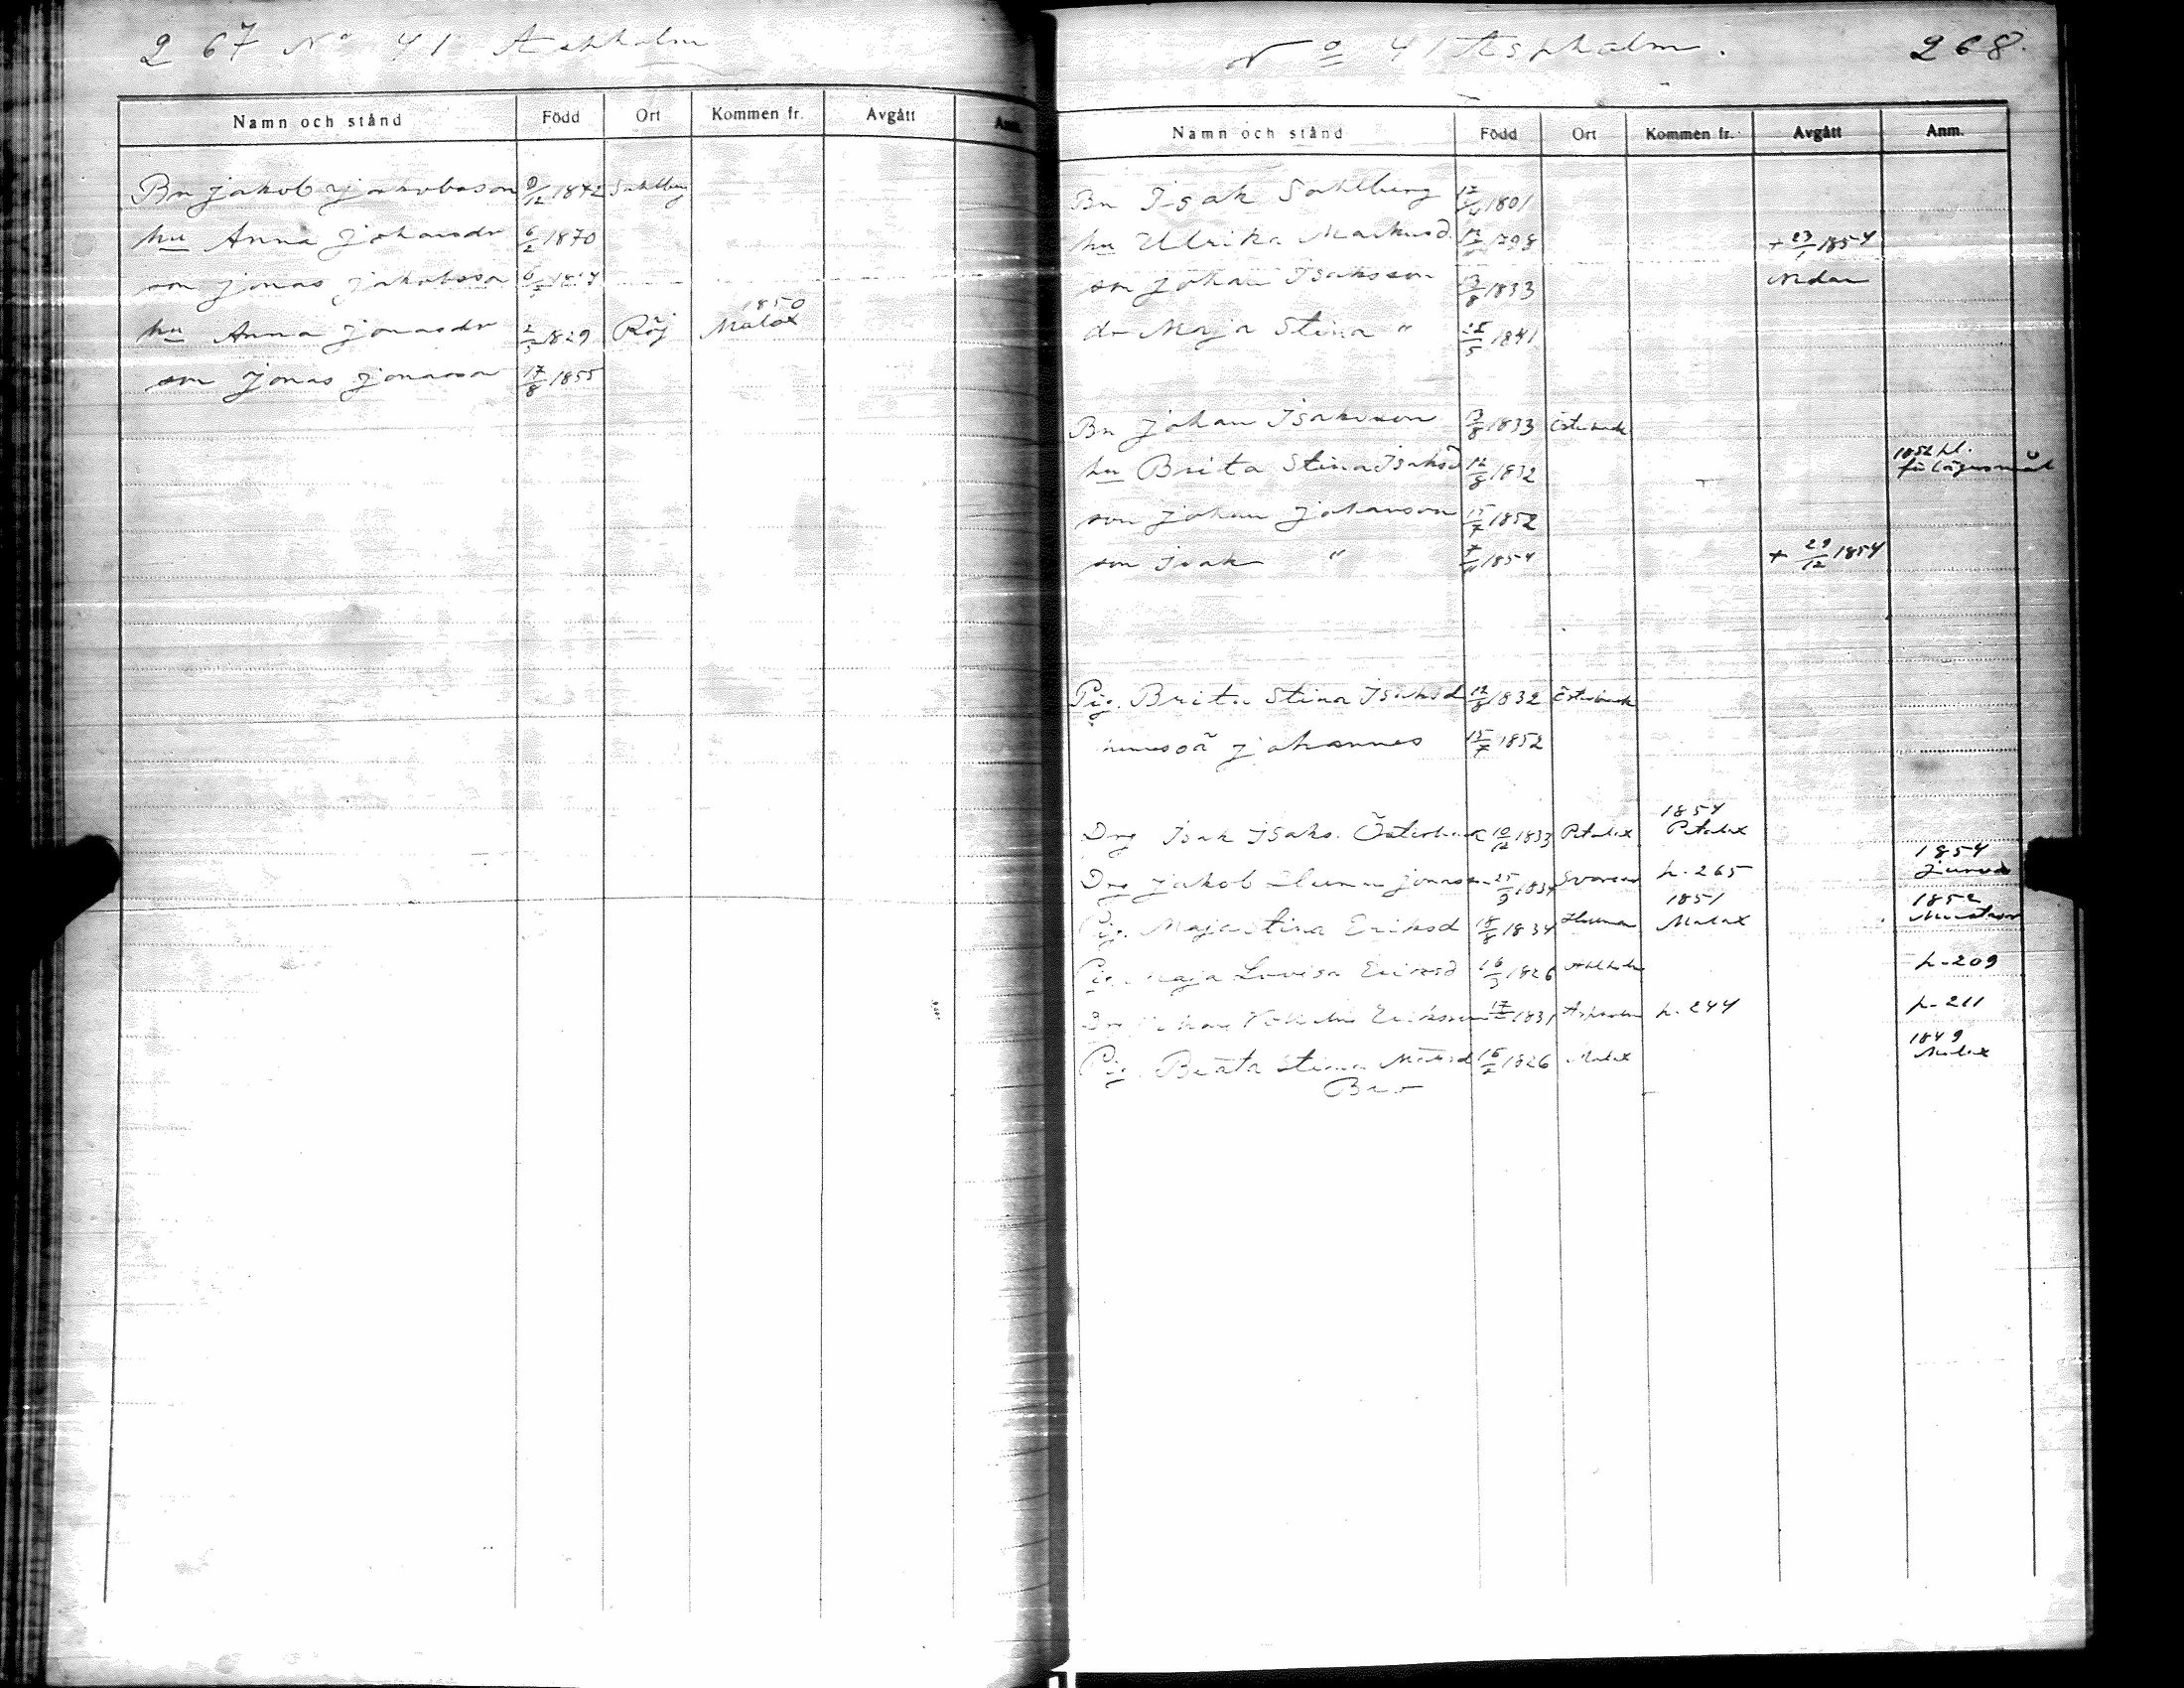 267 No 41 Aspholm
Namn och stånd Född Ort Kommen fr. Avgått Anm.
Bn Jakob Jakobsson 9/12 1842 Sahlberg
hu Anna Johansdr 6/2 1870
son Jonas Jakobsson
1850
hu Anna Jonasdr 1829 Röj Malax
son Jonas Jonasson 17/8 1855
No 41 Aspholm. 268.
Namn och stånd Född Ort Kommen fr. Avgått Anm.
Bn Isak Sahlberg 1801
hu Ulrika Markusd. 1798 + 23/1 1854
son Johan Isaksson 13/8 1833 Nedan
dr Maja Stina " 25/5 1841
Bn Johan Isaksson 13/8 1833 Österback
1852 kl.
hu Brita Stina Isaksd 12/8 1832 för lägersmål
son Johan Johansson 15/7 1852
son Isak " 1854 + 29/12 1854
Pig. Brita Stina Isaksd 12/8 1832 Österback
hennes oä Johannes 15/7 1852
1854
Drg Isak Isaks. Österback 10/12 1833 Petalax Petalax
1854
Drg Jakob Jonasson 25/9 1834 h. 265
1851 1852
Pig. Maja Stina Eriksd 18/8 1834 Malax
Pig. Maja Lovisa Eriksd 16/3 1826 h. 209
Drg Johan Vilhelm Eriksson 1831 Aspholm h. 244 h. 211
1849
Pig. Beata Stina Matsd 16/2 1826 Malax Malax